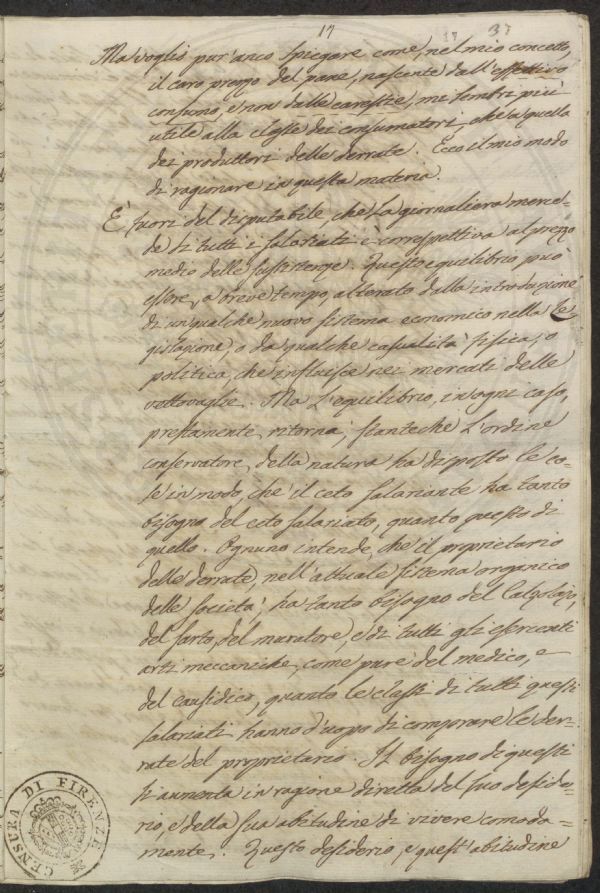 17
17 37
Ma voglio pur'anco spiegare come, nel mio concetto,
il caro prezzo del pane, nascente dall'effettivo
consumo, e non dalle carestie, mi sembri più
utile alla classe dei consumatori, che a quella
dei produttori delle derrate. Ecco il mio modo
di ragionare in questa materia.
È fuori del disputabile, che la giornaliera merce-
de di tutti i salariati è correspettiva al prezzo
medio delle sussistenze. Questo equilibrio può
essere, a breve tempo, alterato dalla introduzione
di un qualche nuovo sistema economico nella le-
gislazione, o da qualche casualità fisica, o
politica, che influisce nei mercati delle
vettovaglie. Ma l'equilibrio, in ogni caso,
prestamente ritorna; stanteché l'ordine
conservatore della natura ha disposto le co-
se in modo, che il ceto salariante ha tanto
bisogno del ceto salariato, quanto questo di
quello. Ognuno intende, che il proprietario
delle derrate, nell'attuale sistema organico
delle società, ha tanto bisogno del Calzolajo,
del sarto, del muratore, e di tutti gli esercenti
arti meccaniche, come pure del medico, e
del causidico, quanto le classi di tutti questi
salariati hanno d'uopo di comprare le der-
rate del proprietario. Il bisogno di questi
si aumenta in ragione diretta del suo deside-
rio, e della sua abitudine di vivere comoda-
mente. Questo desiderio, e quest'abitudine
CENSURA DI FIRENZE